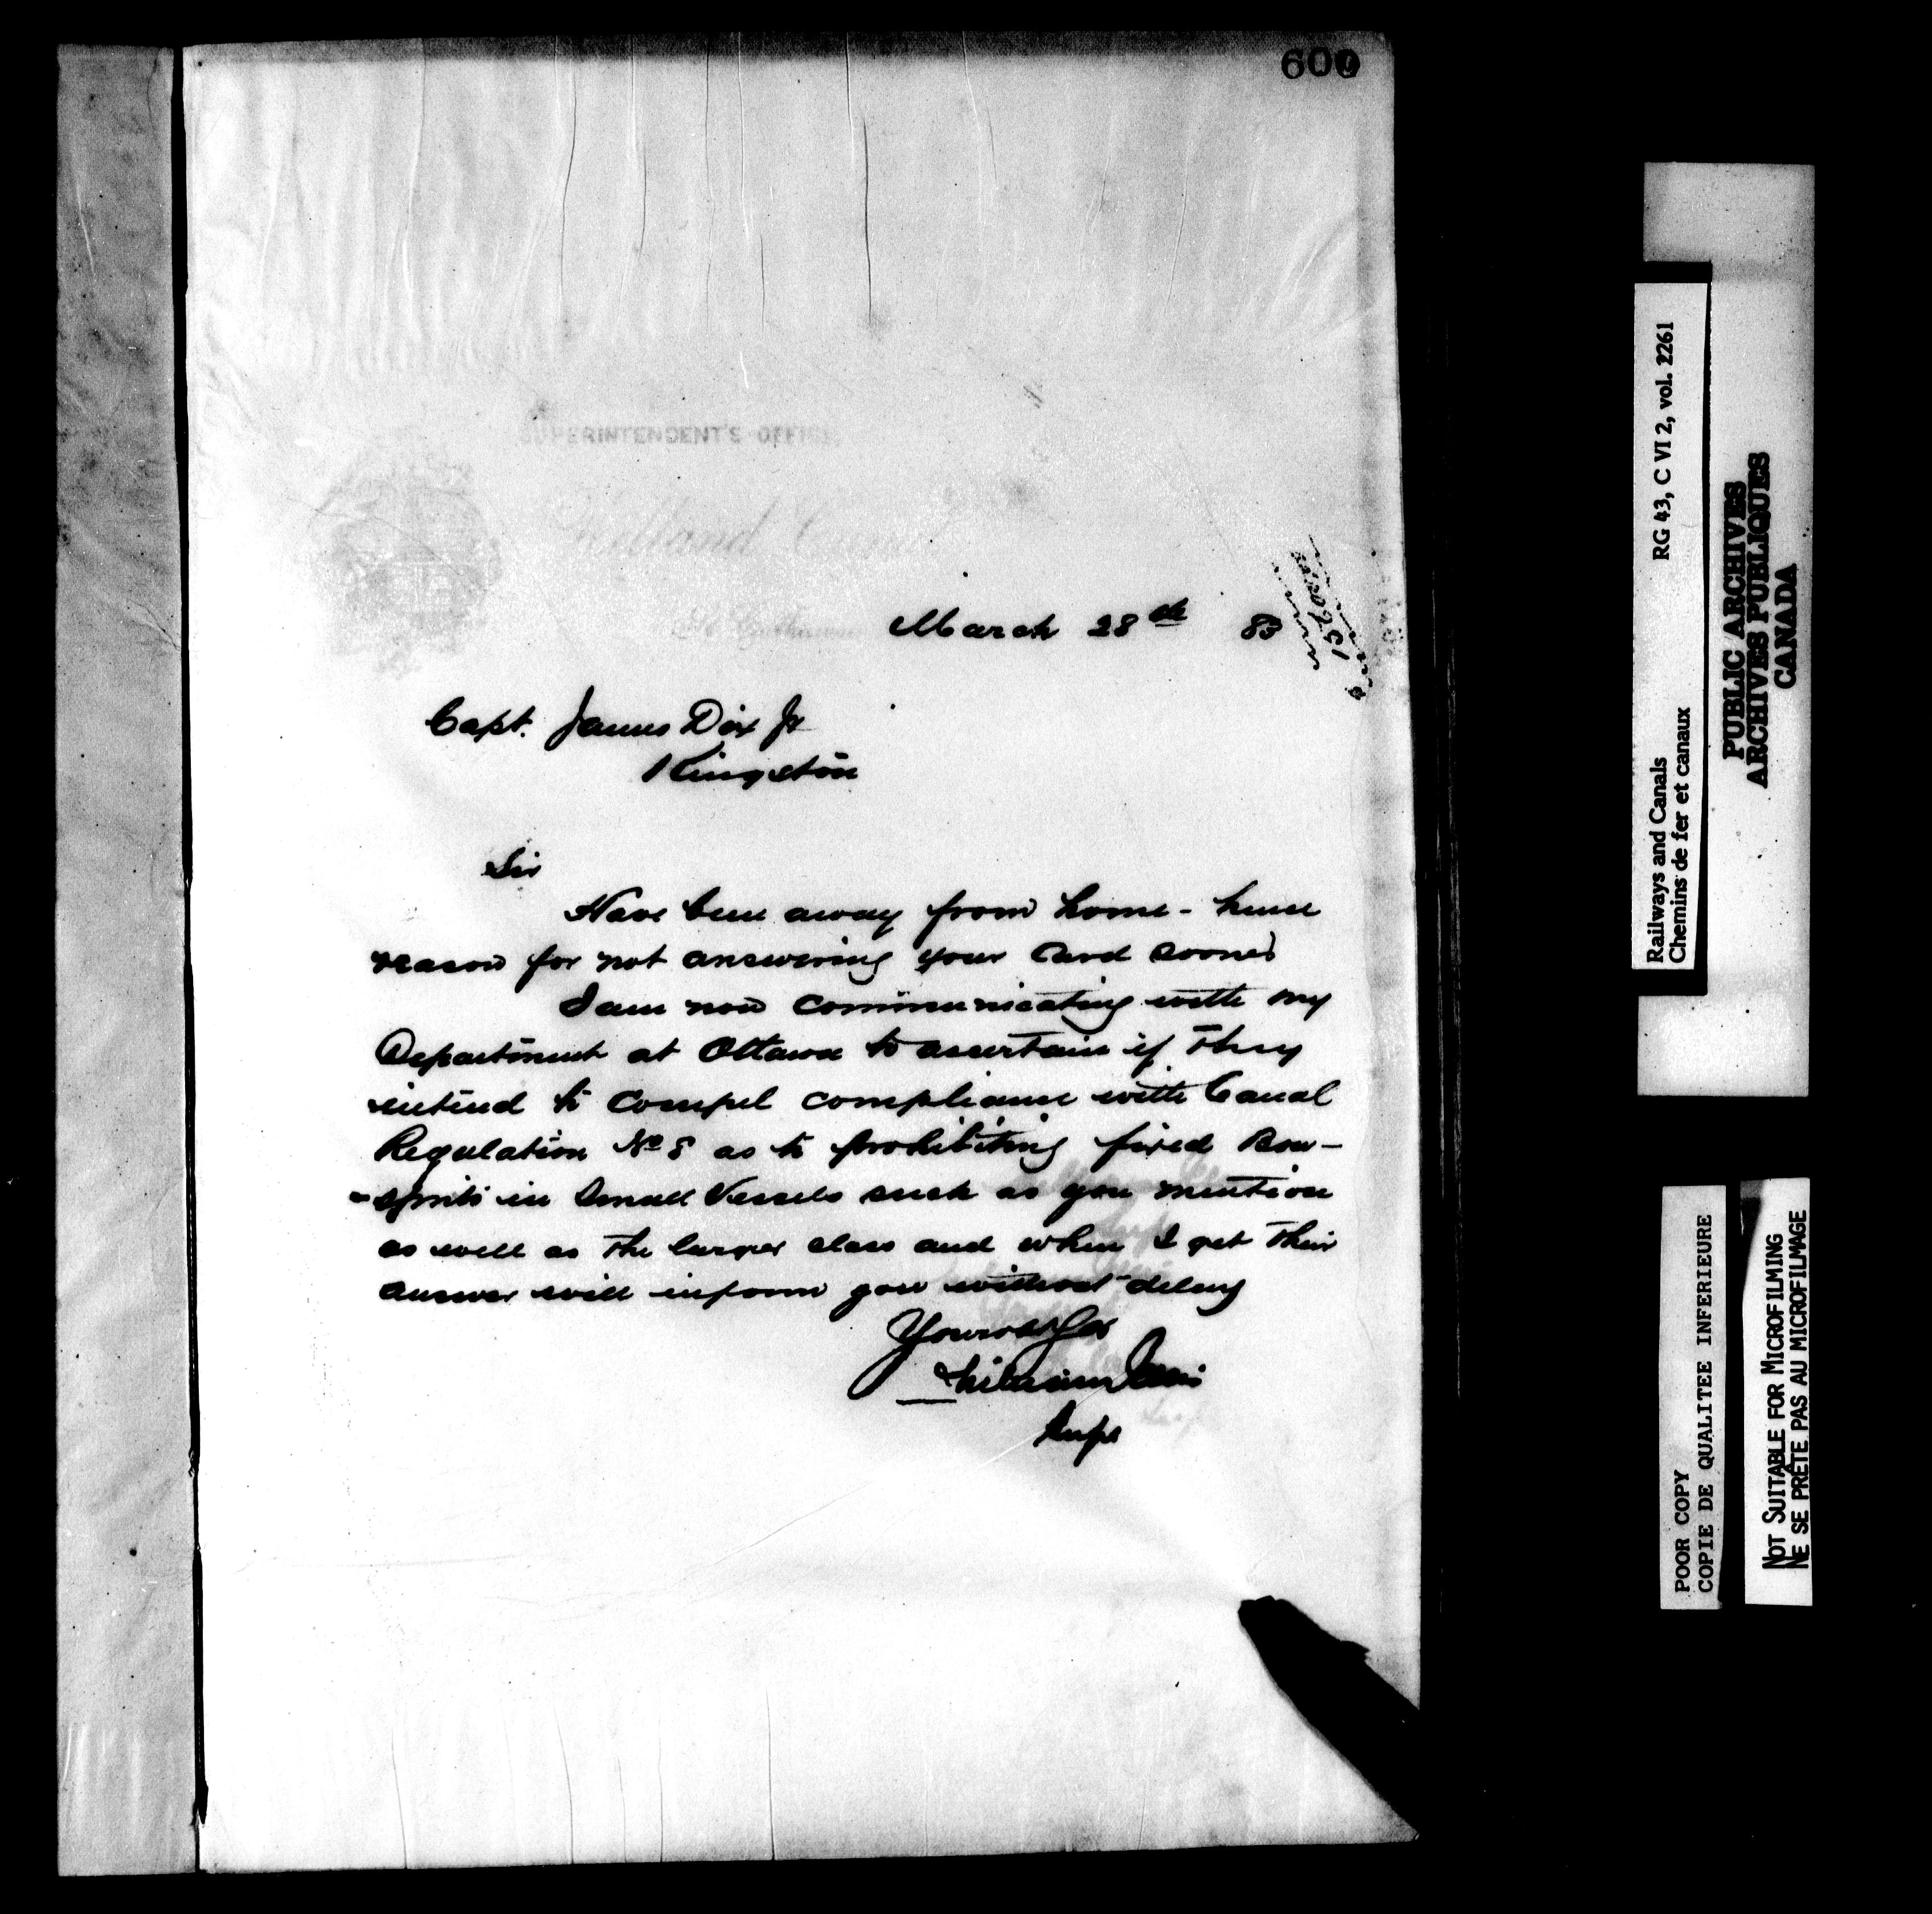 600
SUPERINTENDENT'S OFFICE,
Welland Canal
St. Catharines March 28th 83
Capt. James Dix Jr
Kingston
Sir
Have been away from home - hence
reason for not answering your Card sooner
I am now communicating with my
Department at Ottawa to ascertain if They
intend to Compel compliance with Canal
Regulation No 8 as to prohibiting fixed Bow-
-sprits in Small Vessels such as you mention
as well as The larger class and when I get Their
answer will inform you without delay
Yours
Ellis
Supt
Railways and Canals RG 43, C VI 2, vol. 2261
Chemins de fer et canaux
PUBLIC ARCHIVES
ARCHIVES PUBLIQUES
CANADA
POOR COPY
COPIE DE QUALITEE INFERIEURE
NOT SUITABLE FOR MICROFILMING
NE SE PRÊTE PAS AU MICROFILMAGE